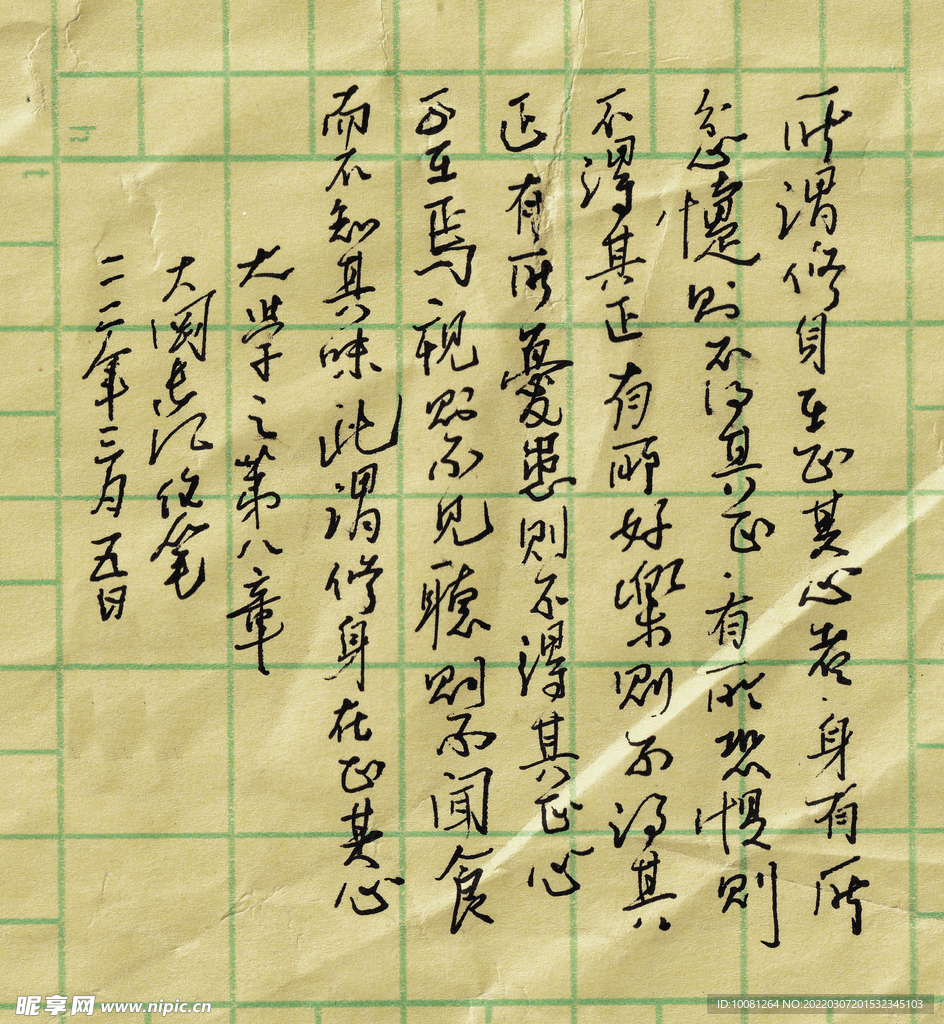 所謂修身在正其心者·身有所
忿懥則不得其正·有所恐惧則
不得其正有所好樂則不得其
正有所憂患則不得其正心
不在焉視則不見聽則不聞食
而不知其味此謂修身在正其心
大學之第八章
大笔
年三月五日
昵享网 www.nipic.cn
ID:10081264 NO:20220307201532345103